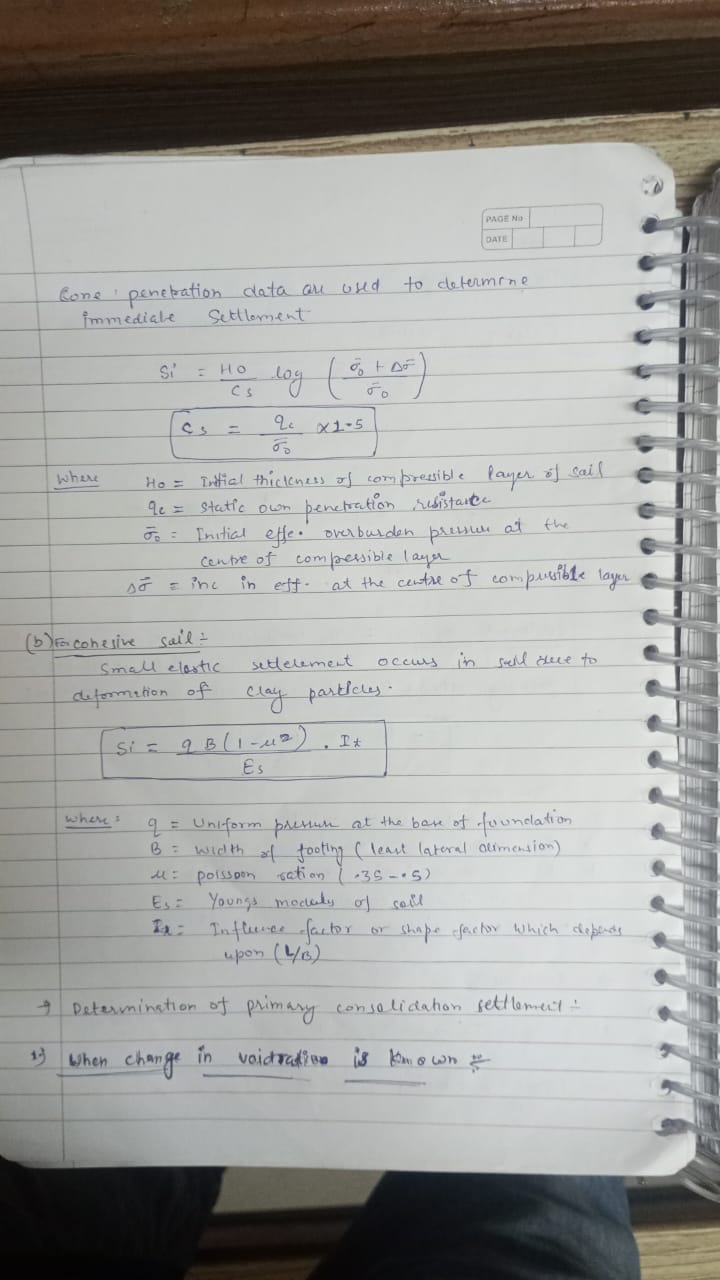 PAGE No
DATE
Cone penetration data are used to determine
immediate Settlement
Si = H0/Cs log ( (σ̄0 + Δσ̄)/σ̄0 )
Cs = qc/σ̄0 x1.5
where H0 = Intial thickness of compressible layer of soil
qc = static own penetration resistance
σ̄0 = Initial effe. overburden pressure at the
centre of compessible layer
Δσ̄ = inc in eff. at the centre of compressible layer
(b) For cohesive soil :-
Small elastic settelement occurs in soil due to
deformation of clay particles.
Si = q B(1-μ²)/Es . It
where: q = Uniform pressure at the base of foundation
B = width of footing (least lateral dimension)
μ = poisspon ration (.35-.5)
Es = Youngs moduly of soil
It = Influence factor or shape factor which depends
upon (L/B)
→ Determination of primary consolidation settlement :-
1) When change in voidratioo is known :-